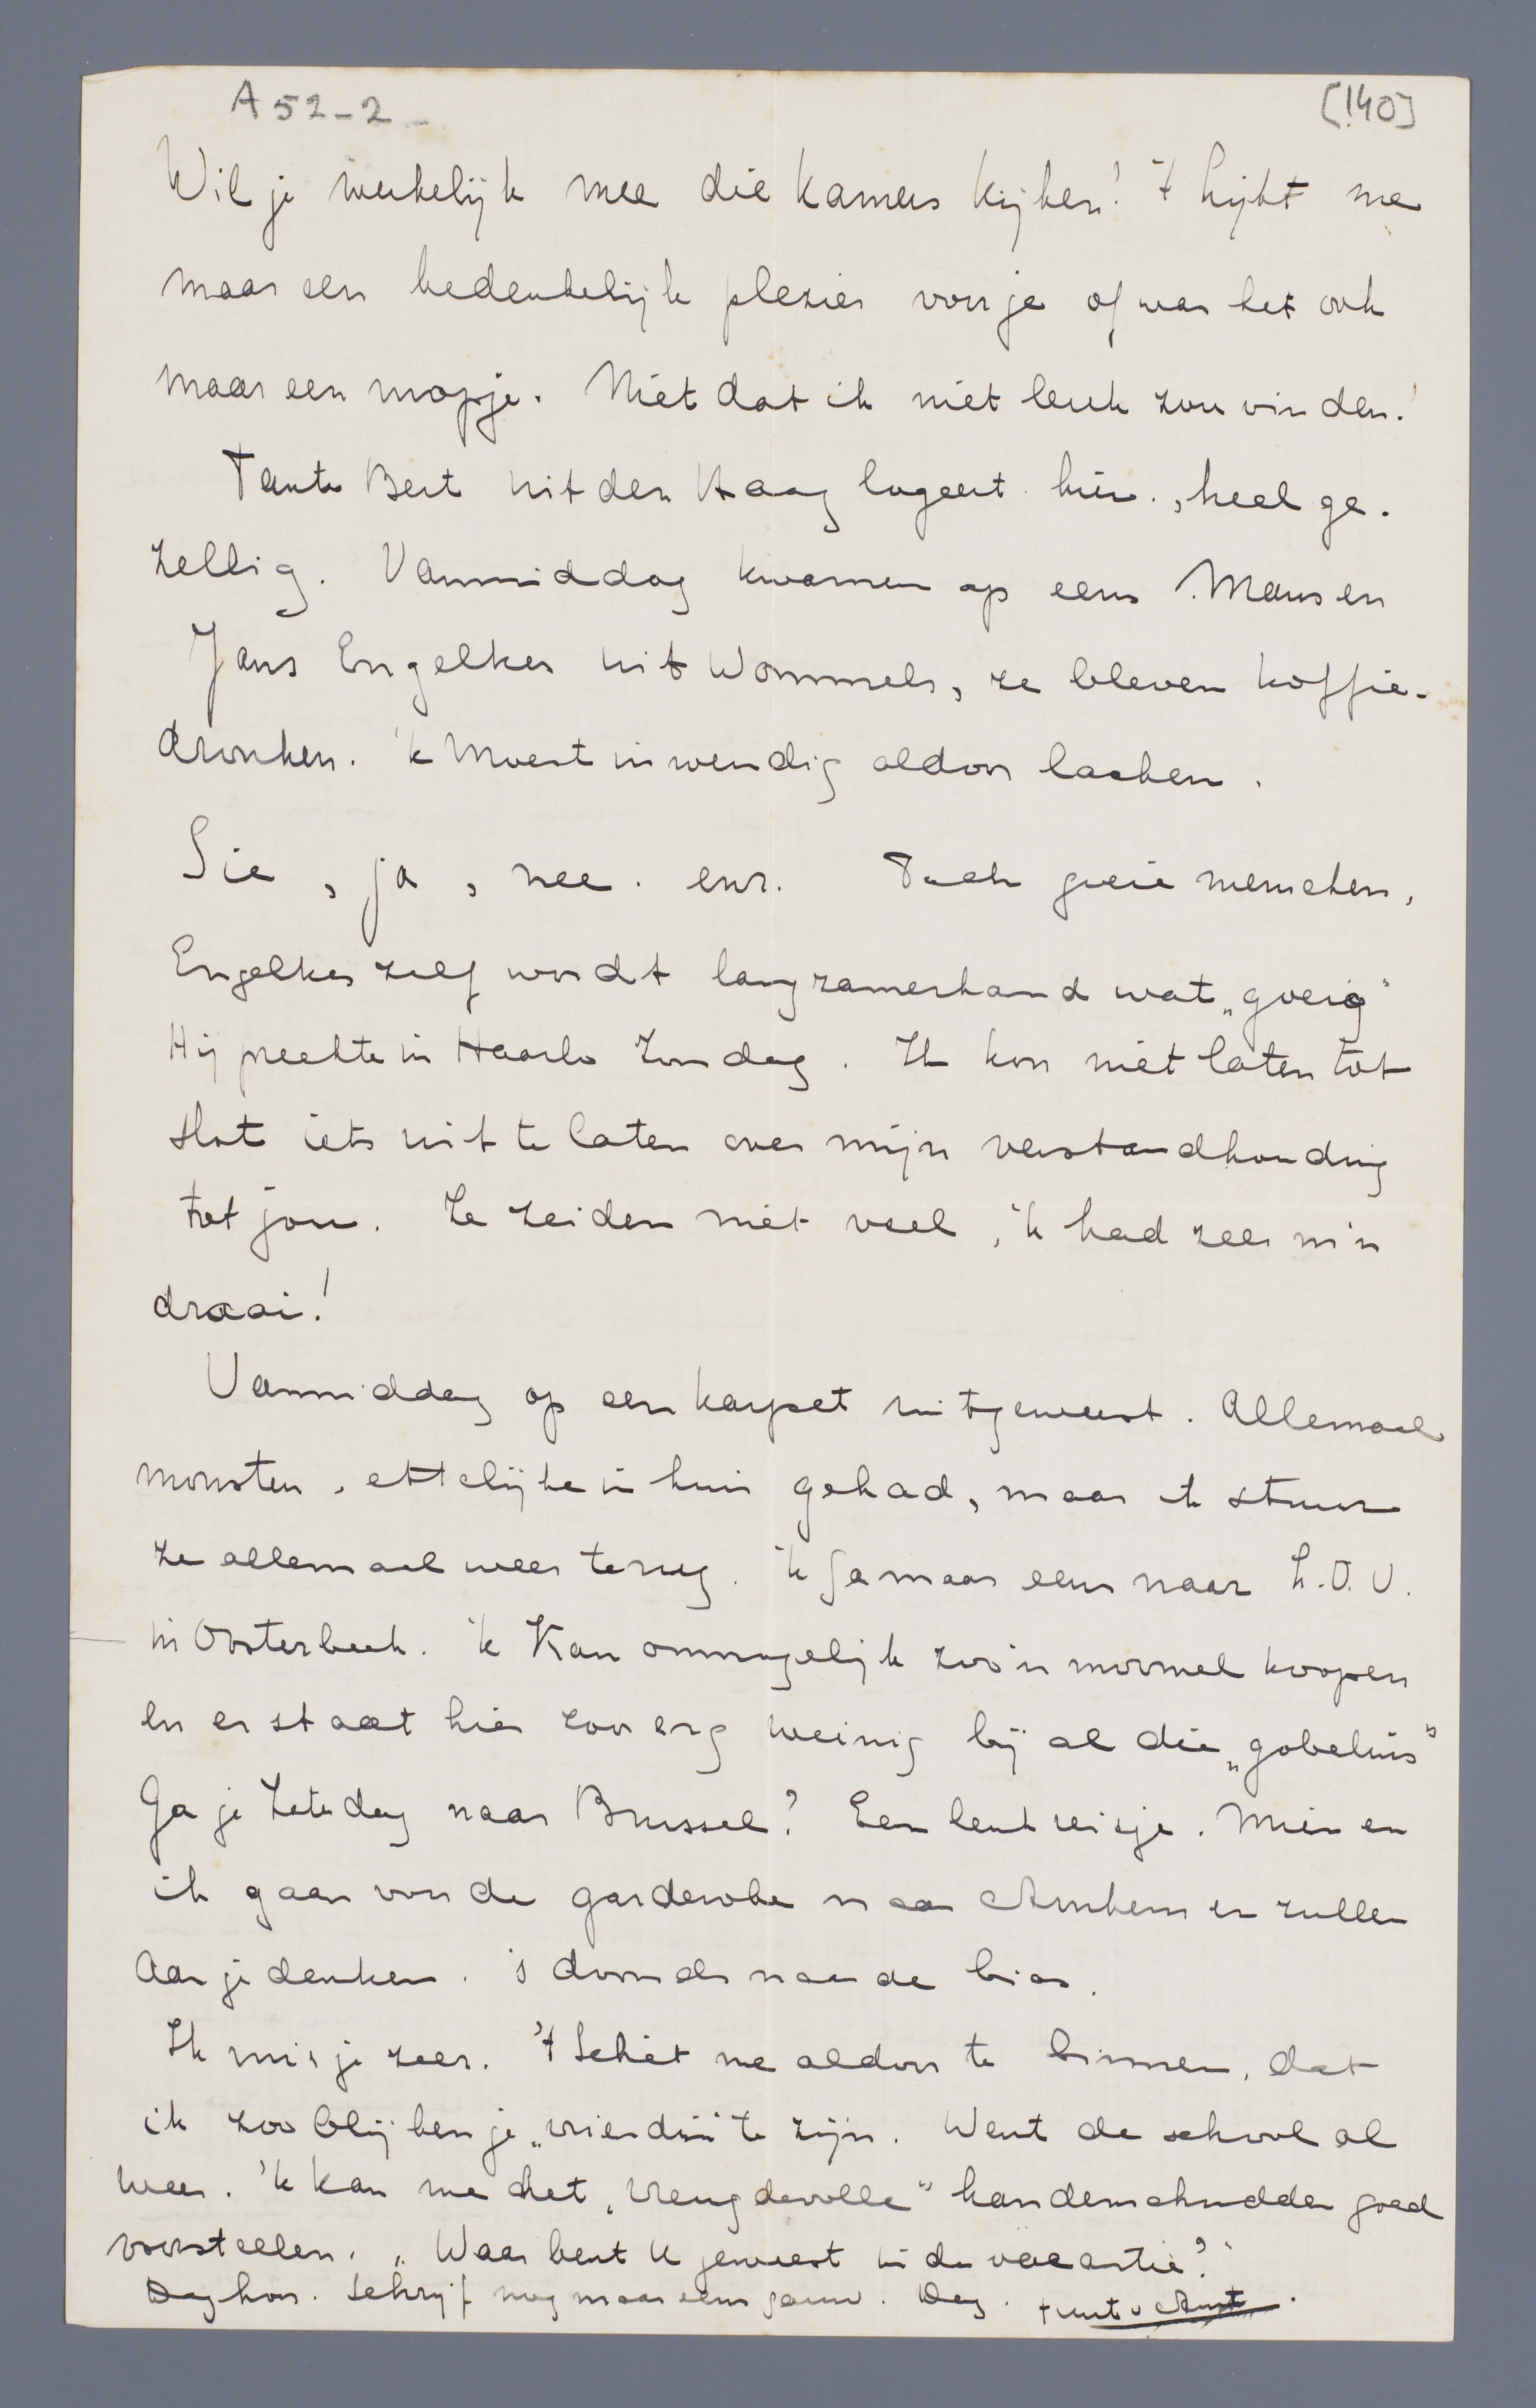 A 52-2-
[140]
Wil je werkelijk mee die kamers kijken! 't lijkt me
maar een bedenkelijk plezier voor je of was het ook
maar een mopje. Niet dat ik niet leuk zou vinden.!
Tante Bert uit den Haag logeert hier., heel ge-
zellig. Vanmiddag kwamen op eens Mans en
Jans Engelkes uit Wommels, ze bleven koffie-
dronken. 'k Moest inwendig aldoor lachen.
Sie, ja, nee. enz. Toch goeie menschen,
Engelkes zelf wordt langzamerhand wat „goeig"
Hij preekte in Haarlo Zondag. Ik kon niet laten tot
slot iets uit te laten over mijn verstandhouding
tot jou. Ze zeiden niet veel, 'k had zeer m'n
draai!
Vanmiddag op een karpet uitgeweest. Allemaal
monsters, ettelijke in huis gehad, maar ik stuur
ze allemaal weer terug. 'k Ga maar eens naar L.O.V.
in Oosterbeek. 'k Kan onmogelijk zoo'n mormel koopen
en er staat hier zoo erg weinig bij al die „gobelins"
Ga je Zaterdag naar Brussel? Een leuk reisje. Mien en
ik gaan voor de garderobe naar Arnhem en zullen
aan je denken. 's avonds naar de bios.
Ik mis je zeer. 't Schiet me aldoor te binnen, dat
ik zoo blij ben je „vriendin te zijn. Went de school al
weer. 'k Kan me het „vreugdevolle" handenschudden goed
voorstellen. „Waar bent U geweest in de vacantie?"
Dag hoor. Schrijf nog maar eens gauw. Dag.